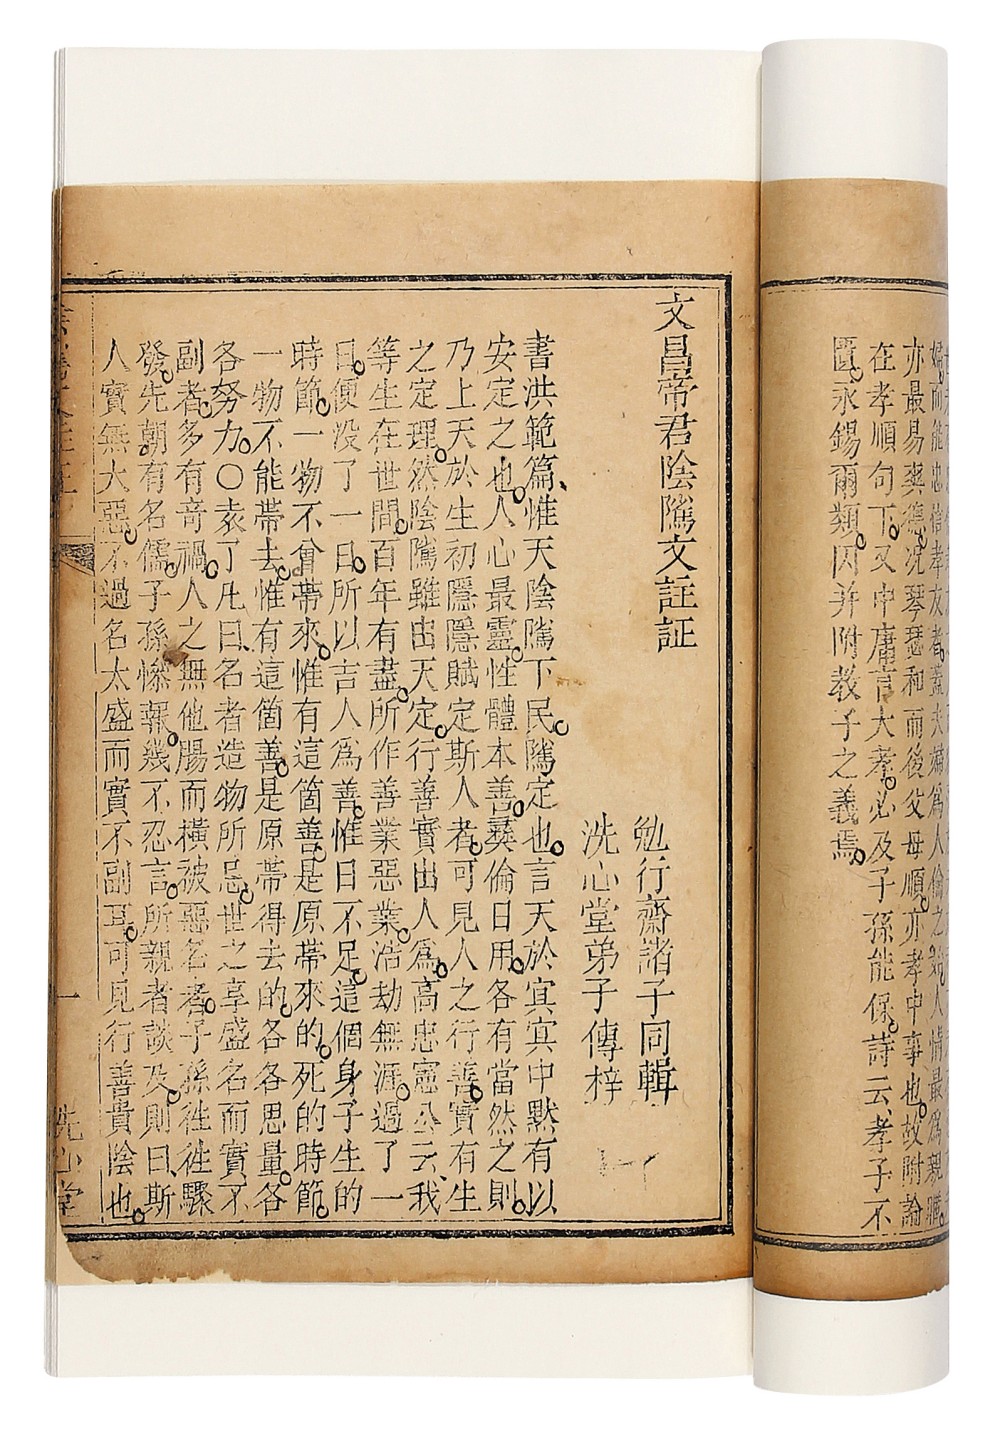 亦最易爽德况琴瑟和而後父母順亦孝中事也故附論
在孝順句下又中庸言大孝必及子孫能保詩云孝子不
匱永錫爾類因并附教子之義焉
文昌帝君陰隲文註証
勉行齋諸子同輯
洗心堂弟子傳梓
書洪範篇惟天陰隲下民隲定也言天於冥冥中默有以
安定之也人心最靈性體本善彞倫日用各有當然之則
乃上天於生初隱隱賦定斯人者可見人之行善實有生
之定理然陰隲雖出天定行善實出人爲高忠憲公云我
等生在世間百年有盡所作善業惡業浩劫無涯過了一
日便没了一日所以吉人爲善惟日不足這個身子生的
時節一物不曾帶來惟有這箇善是原帶來的死的時節
一物不能帶去惟有這箇善是原帶得去的各各思量各
各努力○袁了凡曰名者造物所忌世之享盛名而實不
副者多有竒禍人之無他腸而横被惡名者子孫徃徃驟
發先朝有名儒子孫慘報幾不忍言所親者談及則曰斯
人實無大惡不過名太盛而實不副耳可見行善貴陰也
一
洗心堂